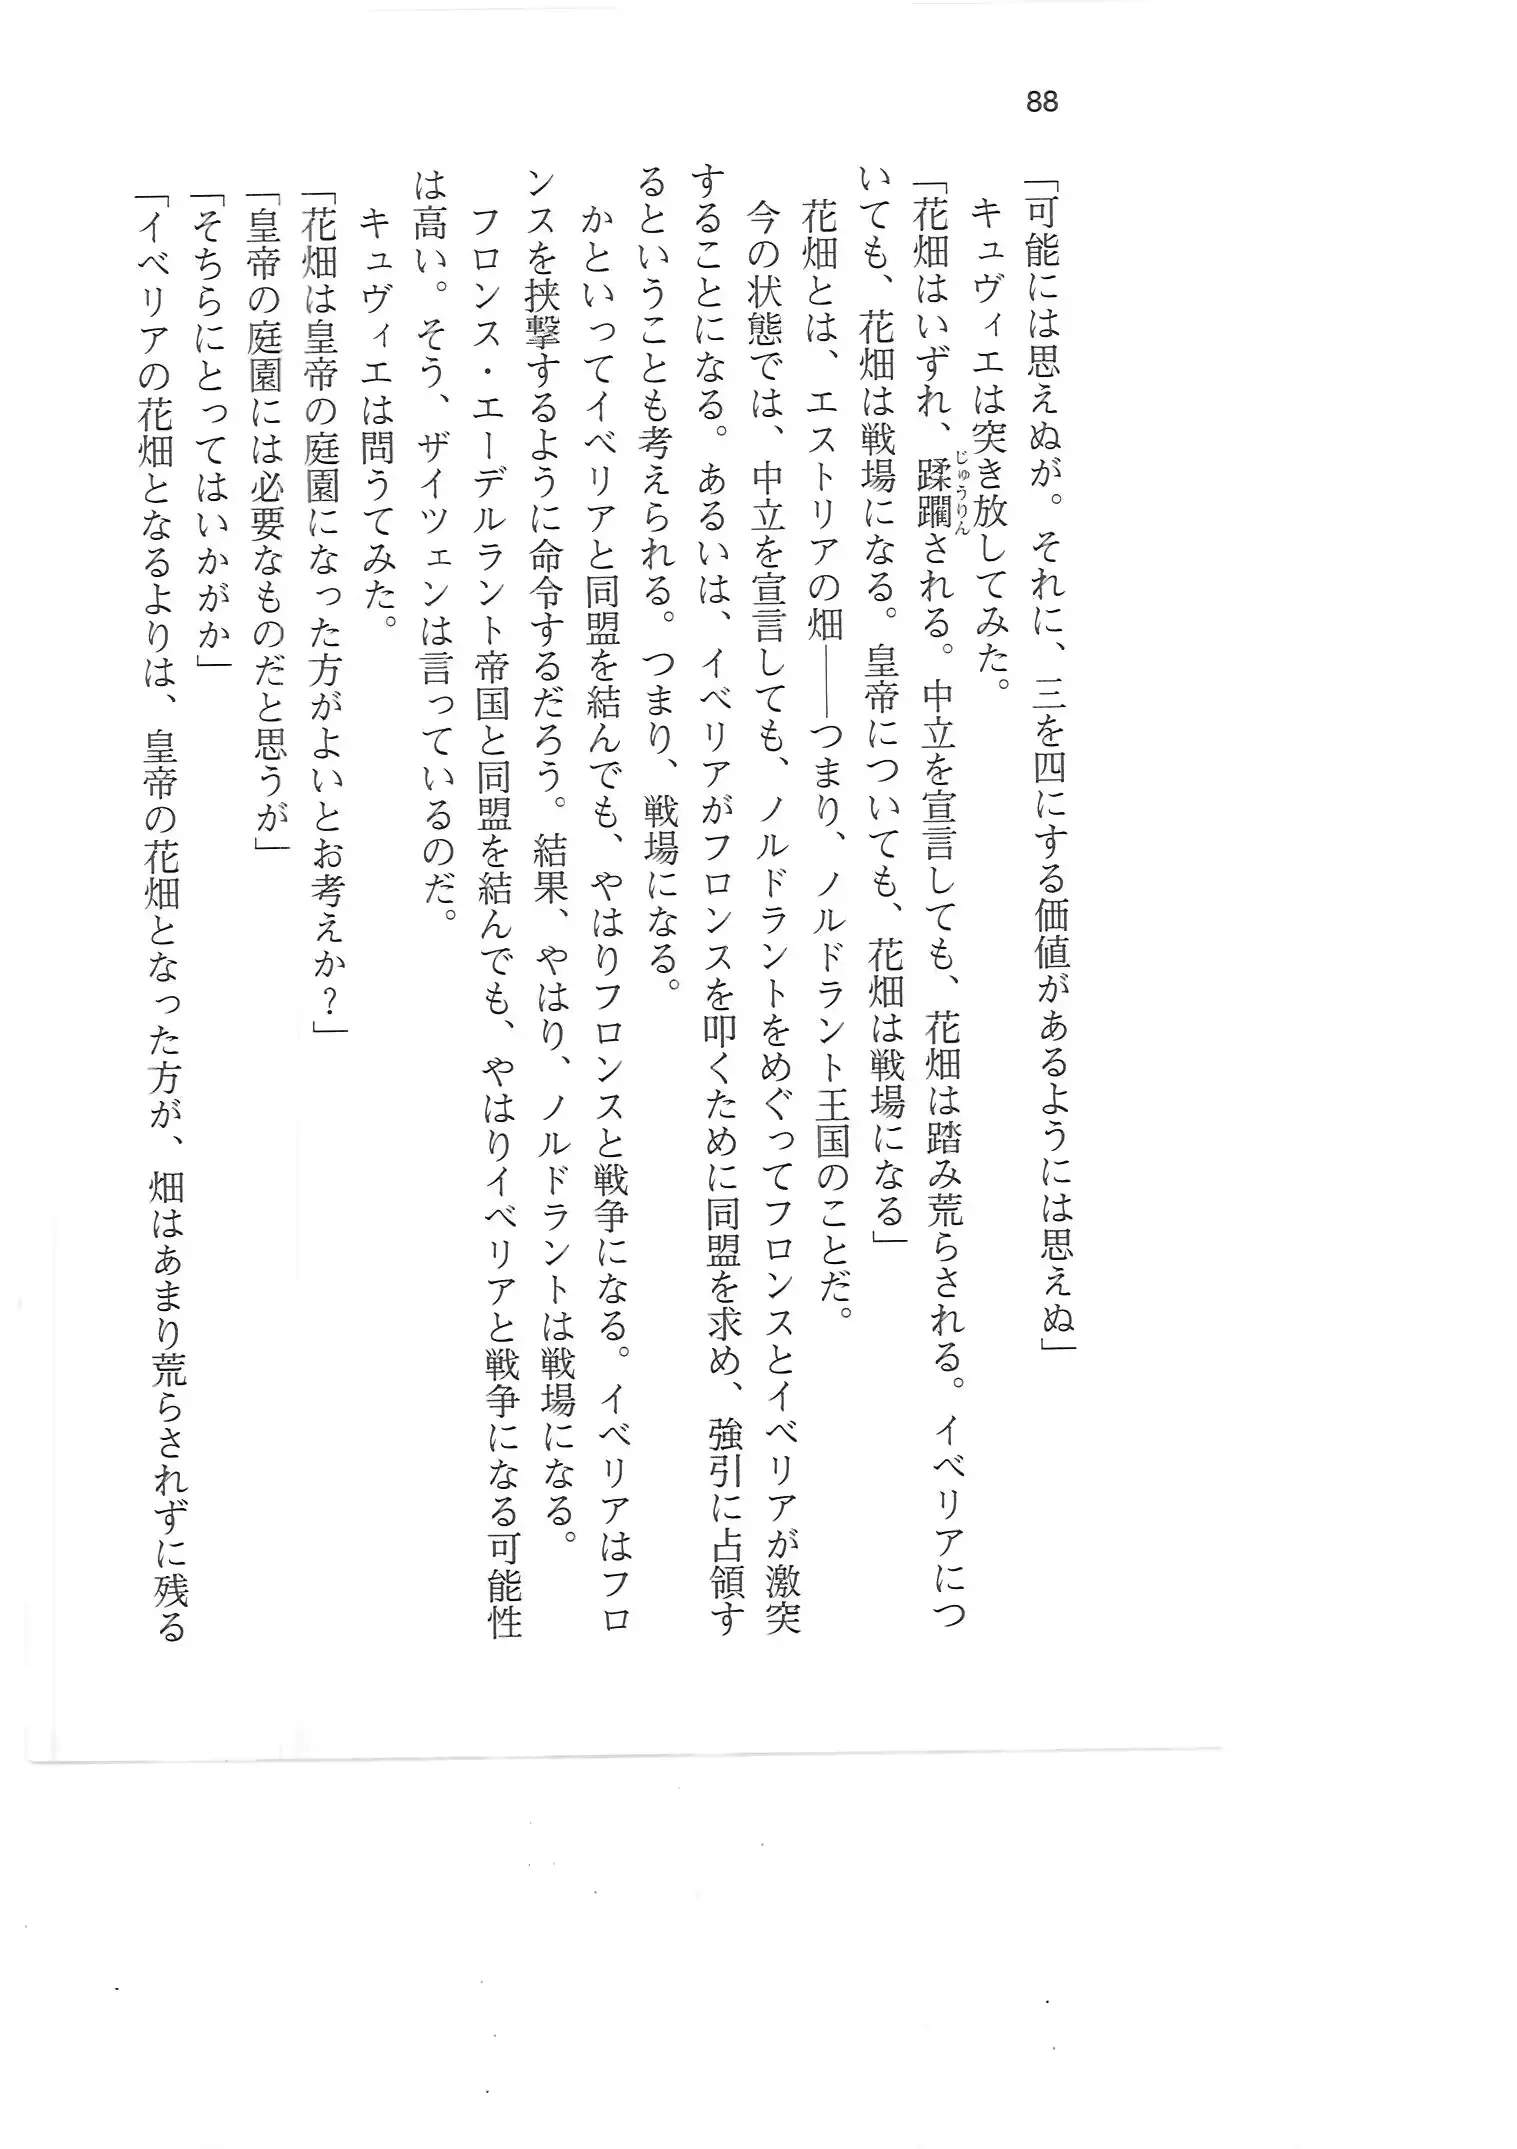 88
「可能には思えぬが。それに、三を四にする価値があるようには思えぬ」
キュヴィエは突き放してみた。
「花畑はいずれ、蹂躙される。中立を宣言しても、花畑は踏み荒らされる。イベリアにつ
じゅうりん
いても、花畑は戦場になる。皇帝についても、花畑は戦場になる」
花畑とは、エストリアの畑――つまり、ノルドラント王国のことだ。
今の状態では、中立を宣言しても、ノルドラントをめぐってフロンスとイベリアが激突
することになる。あるいは、イベリアがフロンスを叩くために同盟を求め、強引に占領す
るということも考えられる。つまり、戦場になる。
かといってイベリアと同盟を結んでも、やはりフロンスと戦争になる。イベリアはフロ
ンスを挟撃するように命令するだろう。結果、やはり、ノルドラントは戦場になる。
フロンス・エーデルラント帝国と同盟を結んでも、やはりイベリアと戦争になる可能性
は高い。そう、ザイツェンは言っているのだ。
キュヴィエは問うてみた。
「花畑は皇帝の庭園になった方がよいとお考えか？」
「皇帝の庭園には必要なものだと思うが」
「そちらにとってはいかがか」
「イベリアの花畑となるよりは、皇帝の花畑となった方が、畑はあまり荒らされずに残る